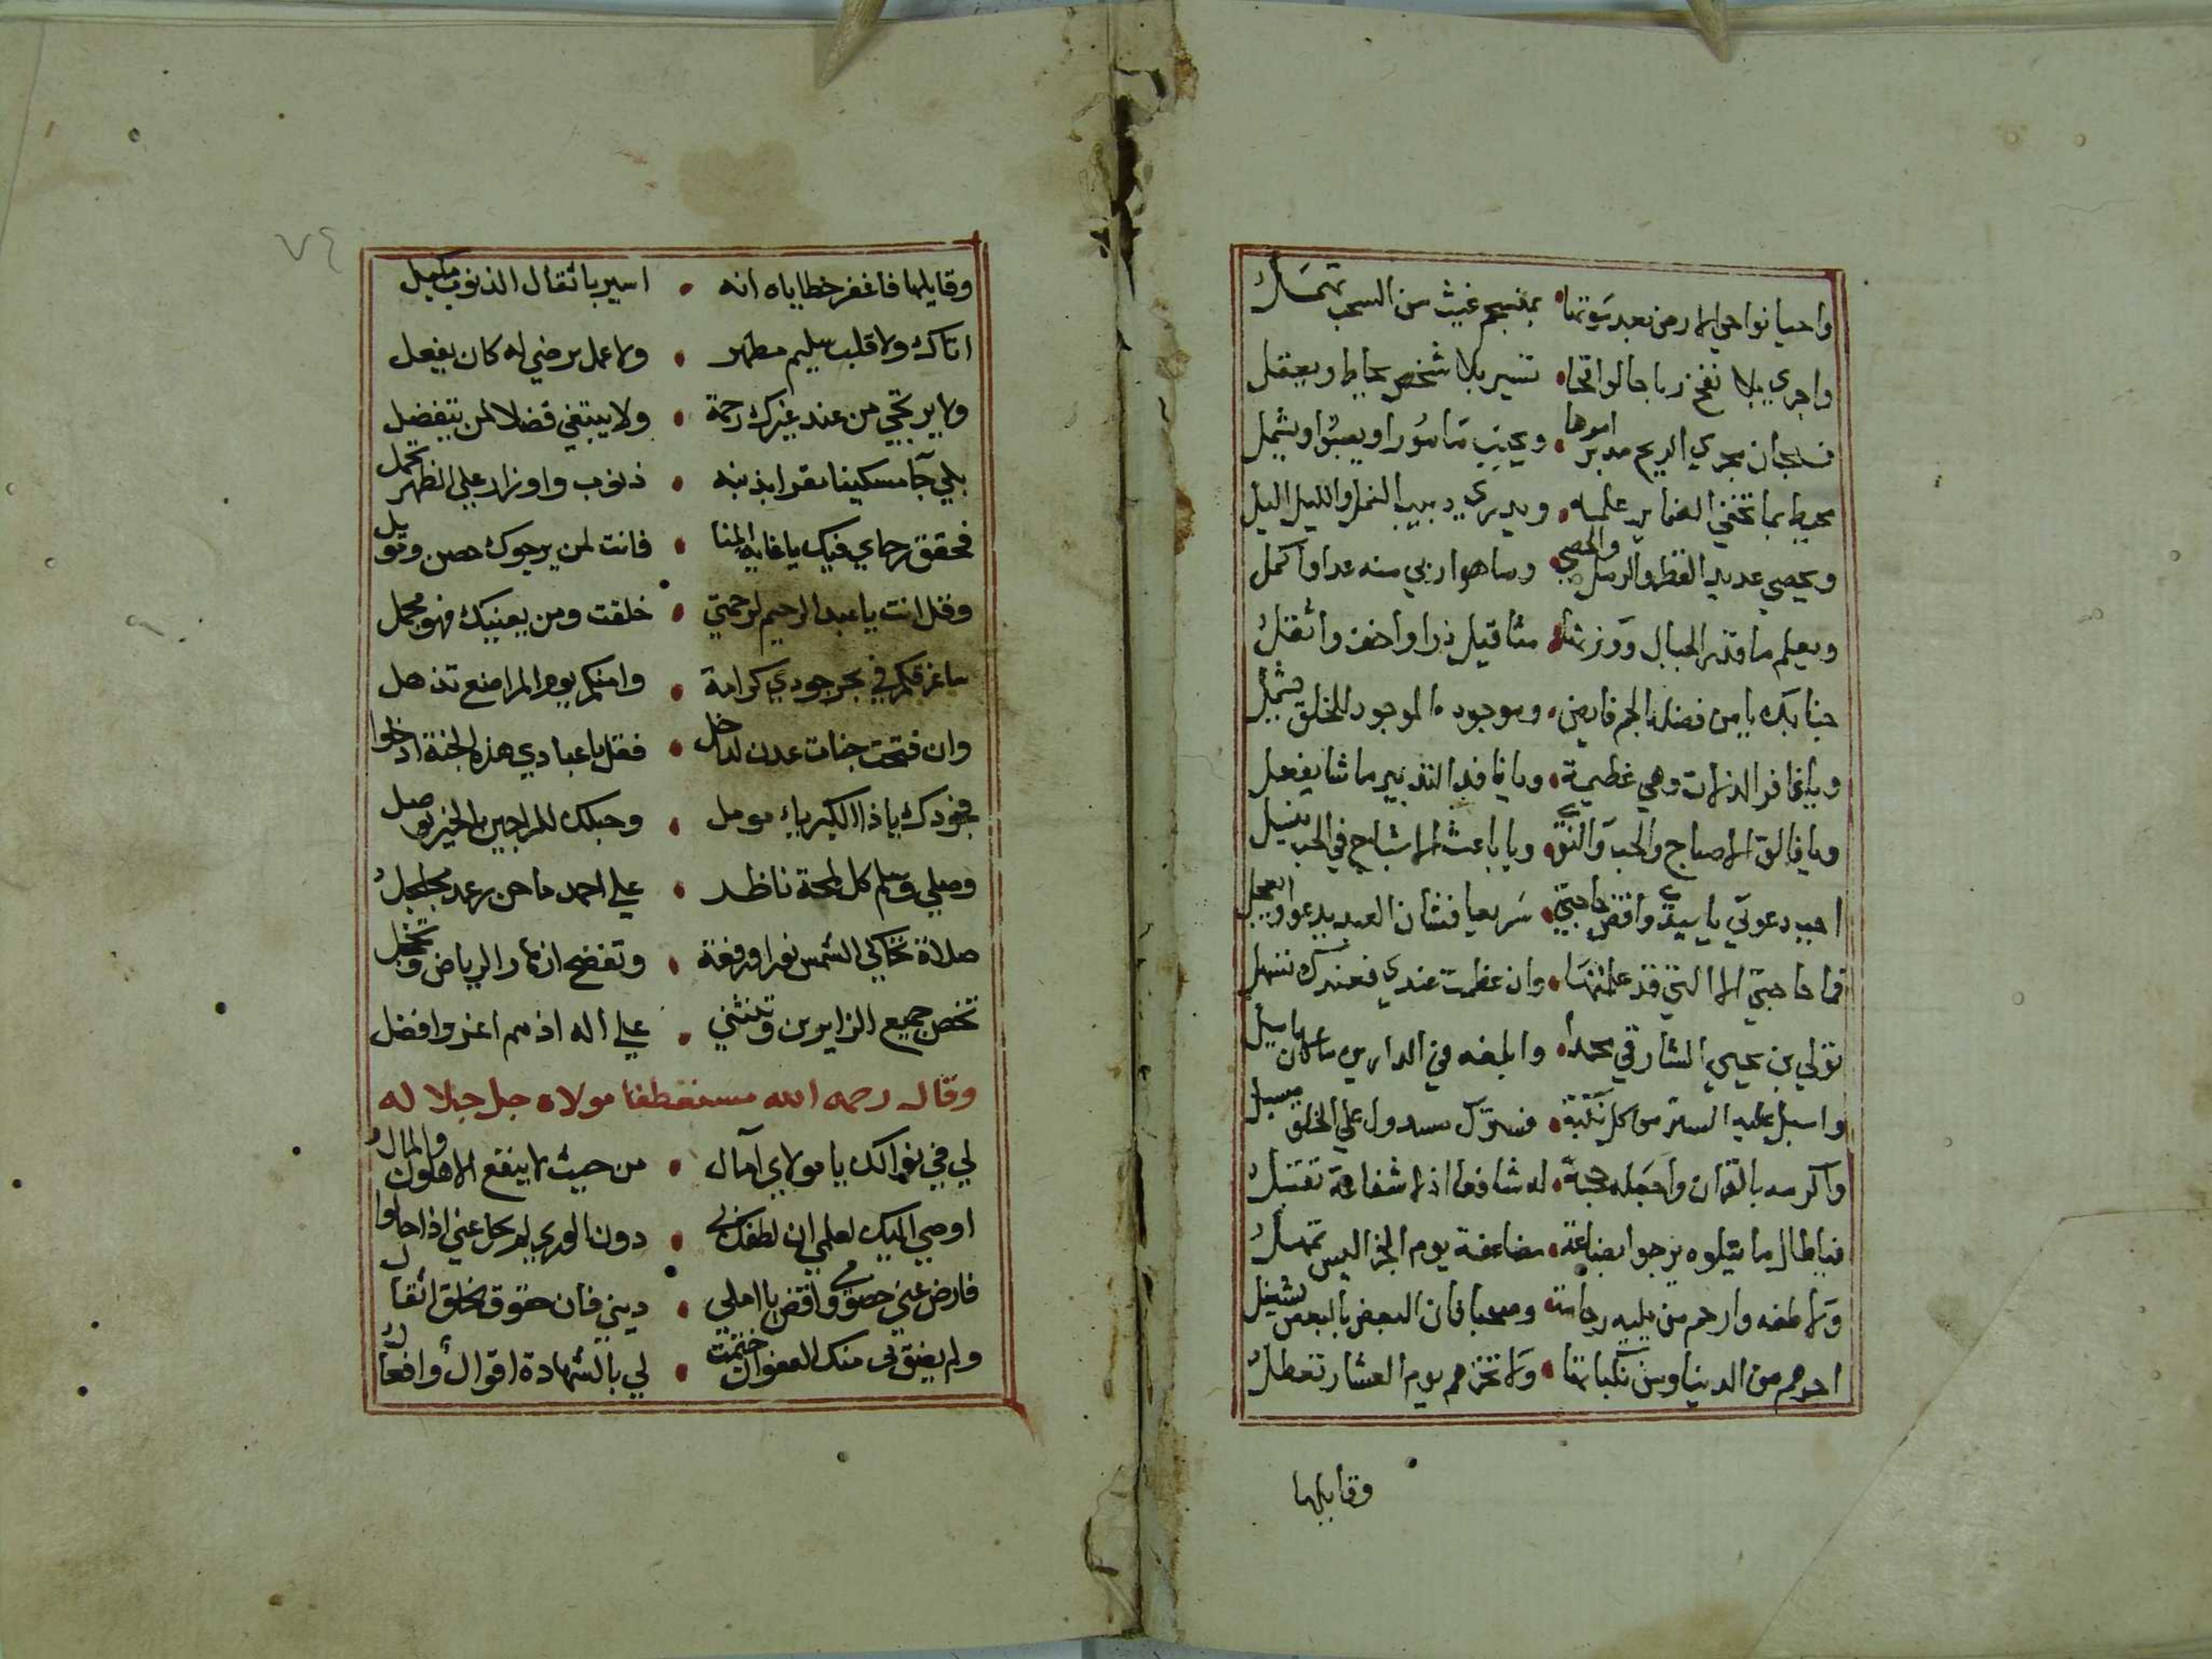 واحيا نواحي الارض بعد موتها • بمنسجم غيث من السحب تهمل
واجري بلا نفخ رياحا لواقحا • تسير بلا شخص يحاط ويعقل
فسبحان مجري الريح مدبر امرها •
محيط بما تخفي الضماير علمه • ويدري دبيب النمل والليل اليل
ويحصي عديد القطر والرمل والحصي • وما هو اربي منه عدا واكمل
ويعلم ما قدر الجبال ووزنها • مثاقيل ذرا واخف واثقل
حنانيك يا من فضله الجم فايض • وموجوده الموجود للخلق يشمل
ويا غافر الزلات وهي عظيمة • ويا نافذ التدبير ما شا يفعل
ويا فالق الاصباح والحب والنوي • ويا باعث الاشباح في الحب ينسل
اجب دعوتي يا سيدي واقض حاجتي • سريعا فشان العبد يدعوا ويعجل
فما حاجتي الا التي قد علمتها • وان عظمت عندي فعندك تسهل
تولي بن يحيي الشارقي محمدا • وابلغه في الدارين ما كان يامل
واسبل عليه الستر من كل نكبة • فسترك مسدول علي الخلق مسبل
واكرمه بالقران واجعله حجة • له شافعا اذ لا شفاعة تقبل
فيا طال ما يتلوه يرجوا بضاعة • مضاعفة يوم الجزا ليس تمهل
ولاطفه وارحم من يليه رحامة • وصحبا فان البعض بالبعض يشغل
اجرهم من الدنيا ومن نكباتها • ولا تخزهم يوم العشار تعطل
وقايلها
٧٤
وقايلها فاغفر خطاياه انه • اسير باثقال الذنوب مكبل
اتاك ولا قلب سليم مطهر • ولا عمل يرضي له كان يفعل
ولا يرتجي من عند غيرك رحمة • ولا يبتغي فضلا لمن يتفضل
بلي جا مسكينا مقرا بذنبه • ذنوب واوزار علي الظهر تحمل
فحقق رجاي فيك يا غاية المنا • فانت لمن يرجوك حصن وموئل
وقل انت يا عبد الرحيم لرحمتي • خلقت ومن يعنيك فهو مجمل
ساغرقكم في بحر جودي كرامة • وامنكم يوم المراضع تذهل
وان فتحت جنات عدن لداخل • فقل يا عبادي هذه الجنة ادخلوا
فجودك يا ذا الكبرياء مومل • وحبلك للراجين بالخير يوصل
وصلي وسلم كل لمحة ناظر • علي احمد ما حن رعد مجلجل
صلاة تحاكي الشمس نورا ورفعة • وتفضح ازهار الرياض وتخجل
تخص جميع الزايرين وتنثني • علي اله اذ هم اعز وافضل
وقال رحمه الله مستعطفا مولاه جل جلاله
لي في نوالك يا مولاي آمال • من حيث لا ينفع الاهلون والمال
اوصي اليك لعلمي ان لطفك بي • دون الوري لم يحل عني اذا حالوا
فارض عني خصومي واقض يا املي • ديني فان حقوق الخلق اثقال
ولم يضق لي منك العفو ان ختمت • لي بالشهادة اقوال وافعال